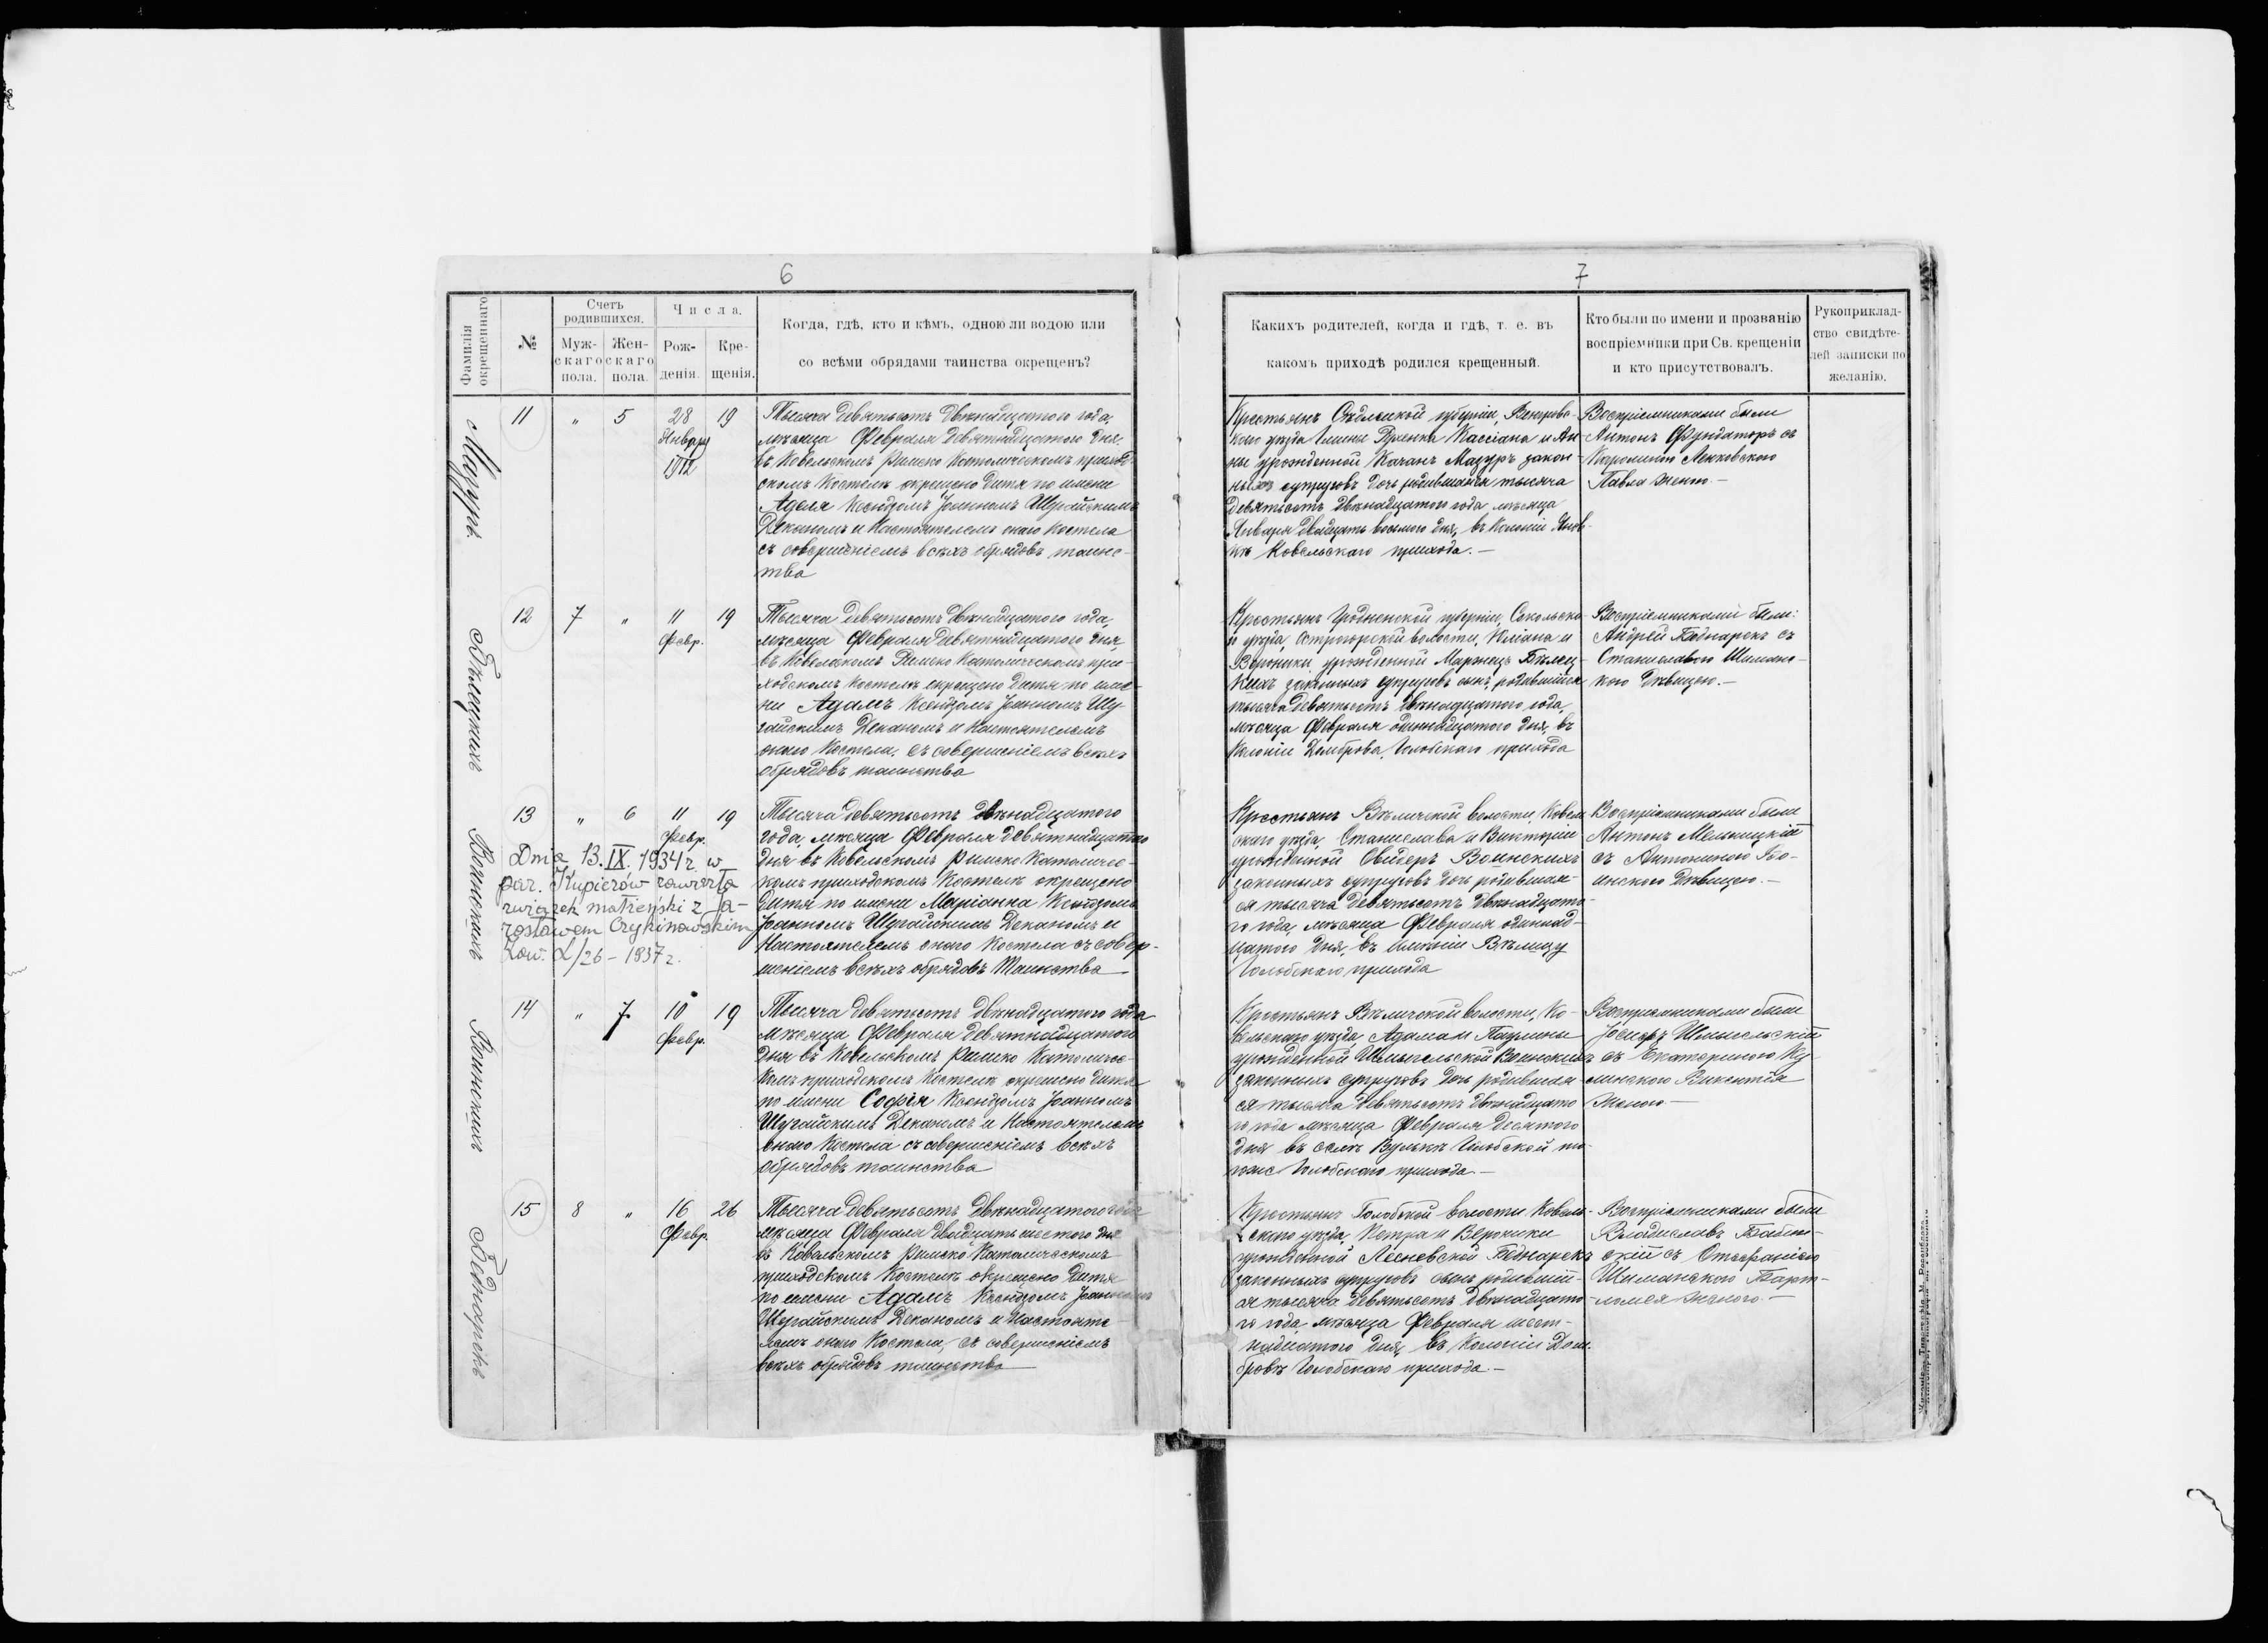 6
Фамилія окрещеннаго
№
Счетъ родившихся.
Муж-скаго пола.
Жен-скаго пола.
Числа.
Рож-денія.
Кре-щенія.
Когда, гдѣ, кто и кѣмъ, одною ли водою или
со всѣми обрядами таинства окрещенъ?
Мазуръ
11 " 5 28 19
Январу
1912
Тысяча девятьсотъ двѣнадцатого года,
мѣсяца Февраля девятнадцатого дня,
въ Ковельскомъ Римско Католическомъ приход-
скомъ Костелѣ окрещено дитя по имени
Аделя Ксендзомъ Іоанномъ
Деканомъ и Настоятелемъ онаго Костела
съ совершеніемъ всѣхъ обрядовъ таинс-
тва
Бѣлецкихъ
12 7 " 11 19
Февр.
Тысяча девятьсотъ двѣнадцатого года,
мѣсяца Февраля девятнадцатого дня,
въ Ковельскомъ Римско Католическомъ при-
ходскомъ Костелѣ окрещено дитя по име-
ни Адамъ Ксендзомъ Іоанномъ
Деканомъ и Настоятелемъ
онаго Костела, съ совершеніемъ всѣхъ
обрядовъ таинства
Воинскихъ
13 " 6 11 19
Февр.
Dnia 13.IX.1934 r. w
par. Kupiczów zawarła
związek małżeński z Ja-
rosławem Czykinowskim
Kow. L/26 - 1937 r.
Тысяча девятьсотъ двѣнадцатого
года, мѣсяца Февраля девятнадцатаго
дня въ Ковельскомъ Римско Католичес-
комъ приходскомъ Костелѣ окрещено
дитя по имени Маріанна Ксендзомъ
Іоанномъ Деканомъ и
Настоятелемъ онаго Костела съ совер-
шеніемъ всѣхъ обрядовъ Таинства
Воинскихъ
14 " 7 10 19
Февр.
Тысяча девятьсотъ двѣнадцатого года
мѣсяца Февраля девятнадцатого
дня въ Ковельскомъ Римско Католичес-
комъ приходскомъ Костелѣ окрещено дитя
по имени Софія Ксендзомъ Іоанномъ
Деканомъ и Настоятелемъ
онаго Костела съ совершеніемъ всѣхъ
обрядовъ таинства
Беднарекъ
15 8 " 16 26
Февр.
Тысяча девятьсотъ двѣнадцатого года
мѣсяца Февраля двадцать шестого дня
въ Ковельскомъ Римско Католическомъ
приходскомъ Костелѣ окрещено дитя
по имени Адамъ Ксендзомъ Іоанномъ
Деканомъ и Настояте-
лемъ онаго Костела, съ совершеніемъ
всѣхъ обрядовъ таинства
7
Какихъ родителей, когда и гдѣ, т. е. въ
какомъ приходѣ родился крещенный.
Кто были по имени и прозванію
воспріемники при Св. крещеніи
и кто присутствовалъ.
Рукоприклад-
ство свидѣте-
лей записки по
желанію.
Крестьянъ Сѣдлецкой губерніи, Венгровс-
кого уѣзда Гмины Кассіана и Ан-
ны урожденной Качанъ Мазуръ закон-
ныхъ супруговъ дочь родившаяся тысяча
девятьсотъ двѣнадцатого года, мѣсяца
Января двадцать восьмого дня, въ Колоніи
Ковельскаго прихода.-
Воспріемниками были
Антонъ Фундаторъ съ
Каролиною
Павла женою.-
Крестьянъ Гродненской губерніи, Сокольска-
го уѣзда, волости, и
Вероники урожденной Бѣлец-
кихъ законныхъ супруговъ сынъ, родившійся
тысяча девятьсотъ двѣнадцатого года,
мѣсяца Февраля одиннадцатого дня, въ
Колоніи Домброва, Голобскаго прихода
Воспріемниками были:
Андрей Беднарекъ съ
Станиславою Шиманс-
кою дѣвицею.-
Крестьянъ волости, Ковель-
скаго уѣзда, Станислава и Викторіи
урожденной Свидеръ Воинскихъ
законныхъ супруговъ дочь родившая-
ся тысяча девятьсотъ двѣнадцато-
го года, мѣсяца Февраля одиннад-
цатого дня, въ имѣніи
Голобскаго прихода
Воспріемниками были
Антонъ Мельницкій
съ Антониною Во-
инскою дѣвицею.-
Крестьянъ волости, Ко-
вельскаго уѣзда Адама и Паулины
урожденной Воинскихъ
законныхъ супруговъ дочь родившая-
ся тысяча девятьсотъ двѣнадцато
го года мѣсяца Февраля десятого
дня въ селѣ Вулькѣ Голобской
Голобскаго прихода.-
Воспріемниками были
Іосифъ
съ Екатериною Ку-
линскою Викентія
женою-
Крестьянъ Голобской волости Ковель-
скаго уѣзда, Петра и Вероники
урожденной Лесневской Беднарекъ
законныхъ супруговъ сынъ родившій-
ся тысяча девятьсотъ двѣнадцато-
го года мѣсяца Февраля шест-
надцатого дня, въ Колоніи Дом-
бровѣ Голобскаго прихода.-
Воспріемниками были
Владиславъ
съ Стефаніею
Шиманскою Барт-
ломея женою.-